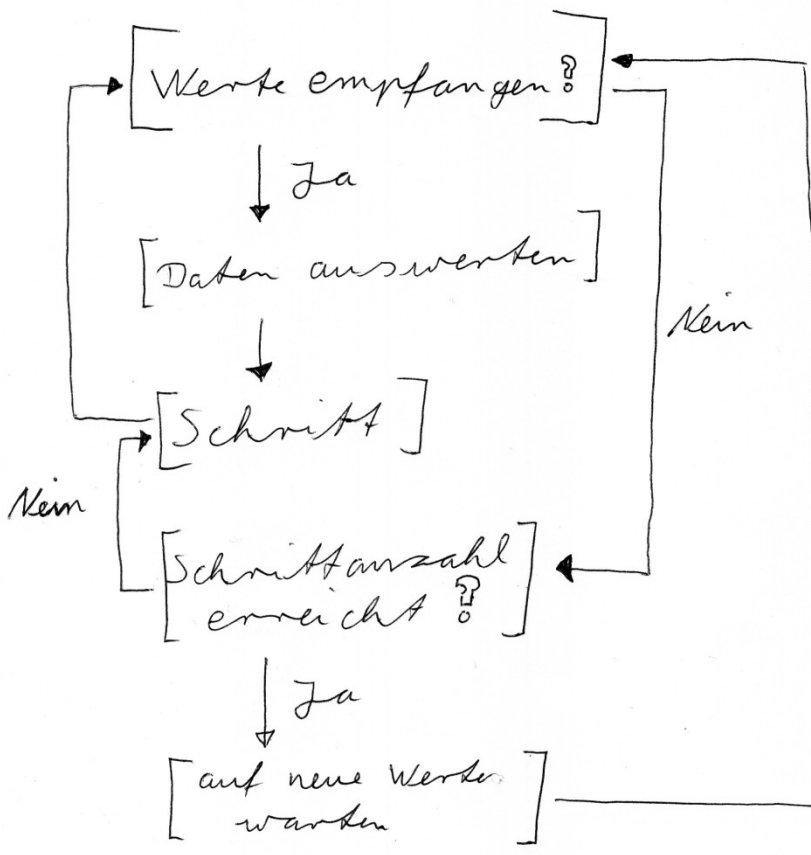 Werte empfangen?
Ja
Daten auswerten
Nein
Schritt
Nein
Schrittanzahl
erreicht ?
Ja
auf neue Werte
warten